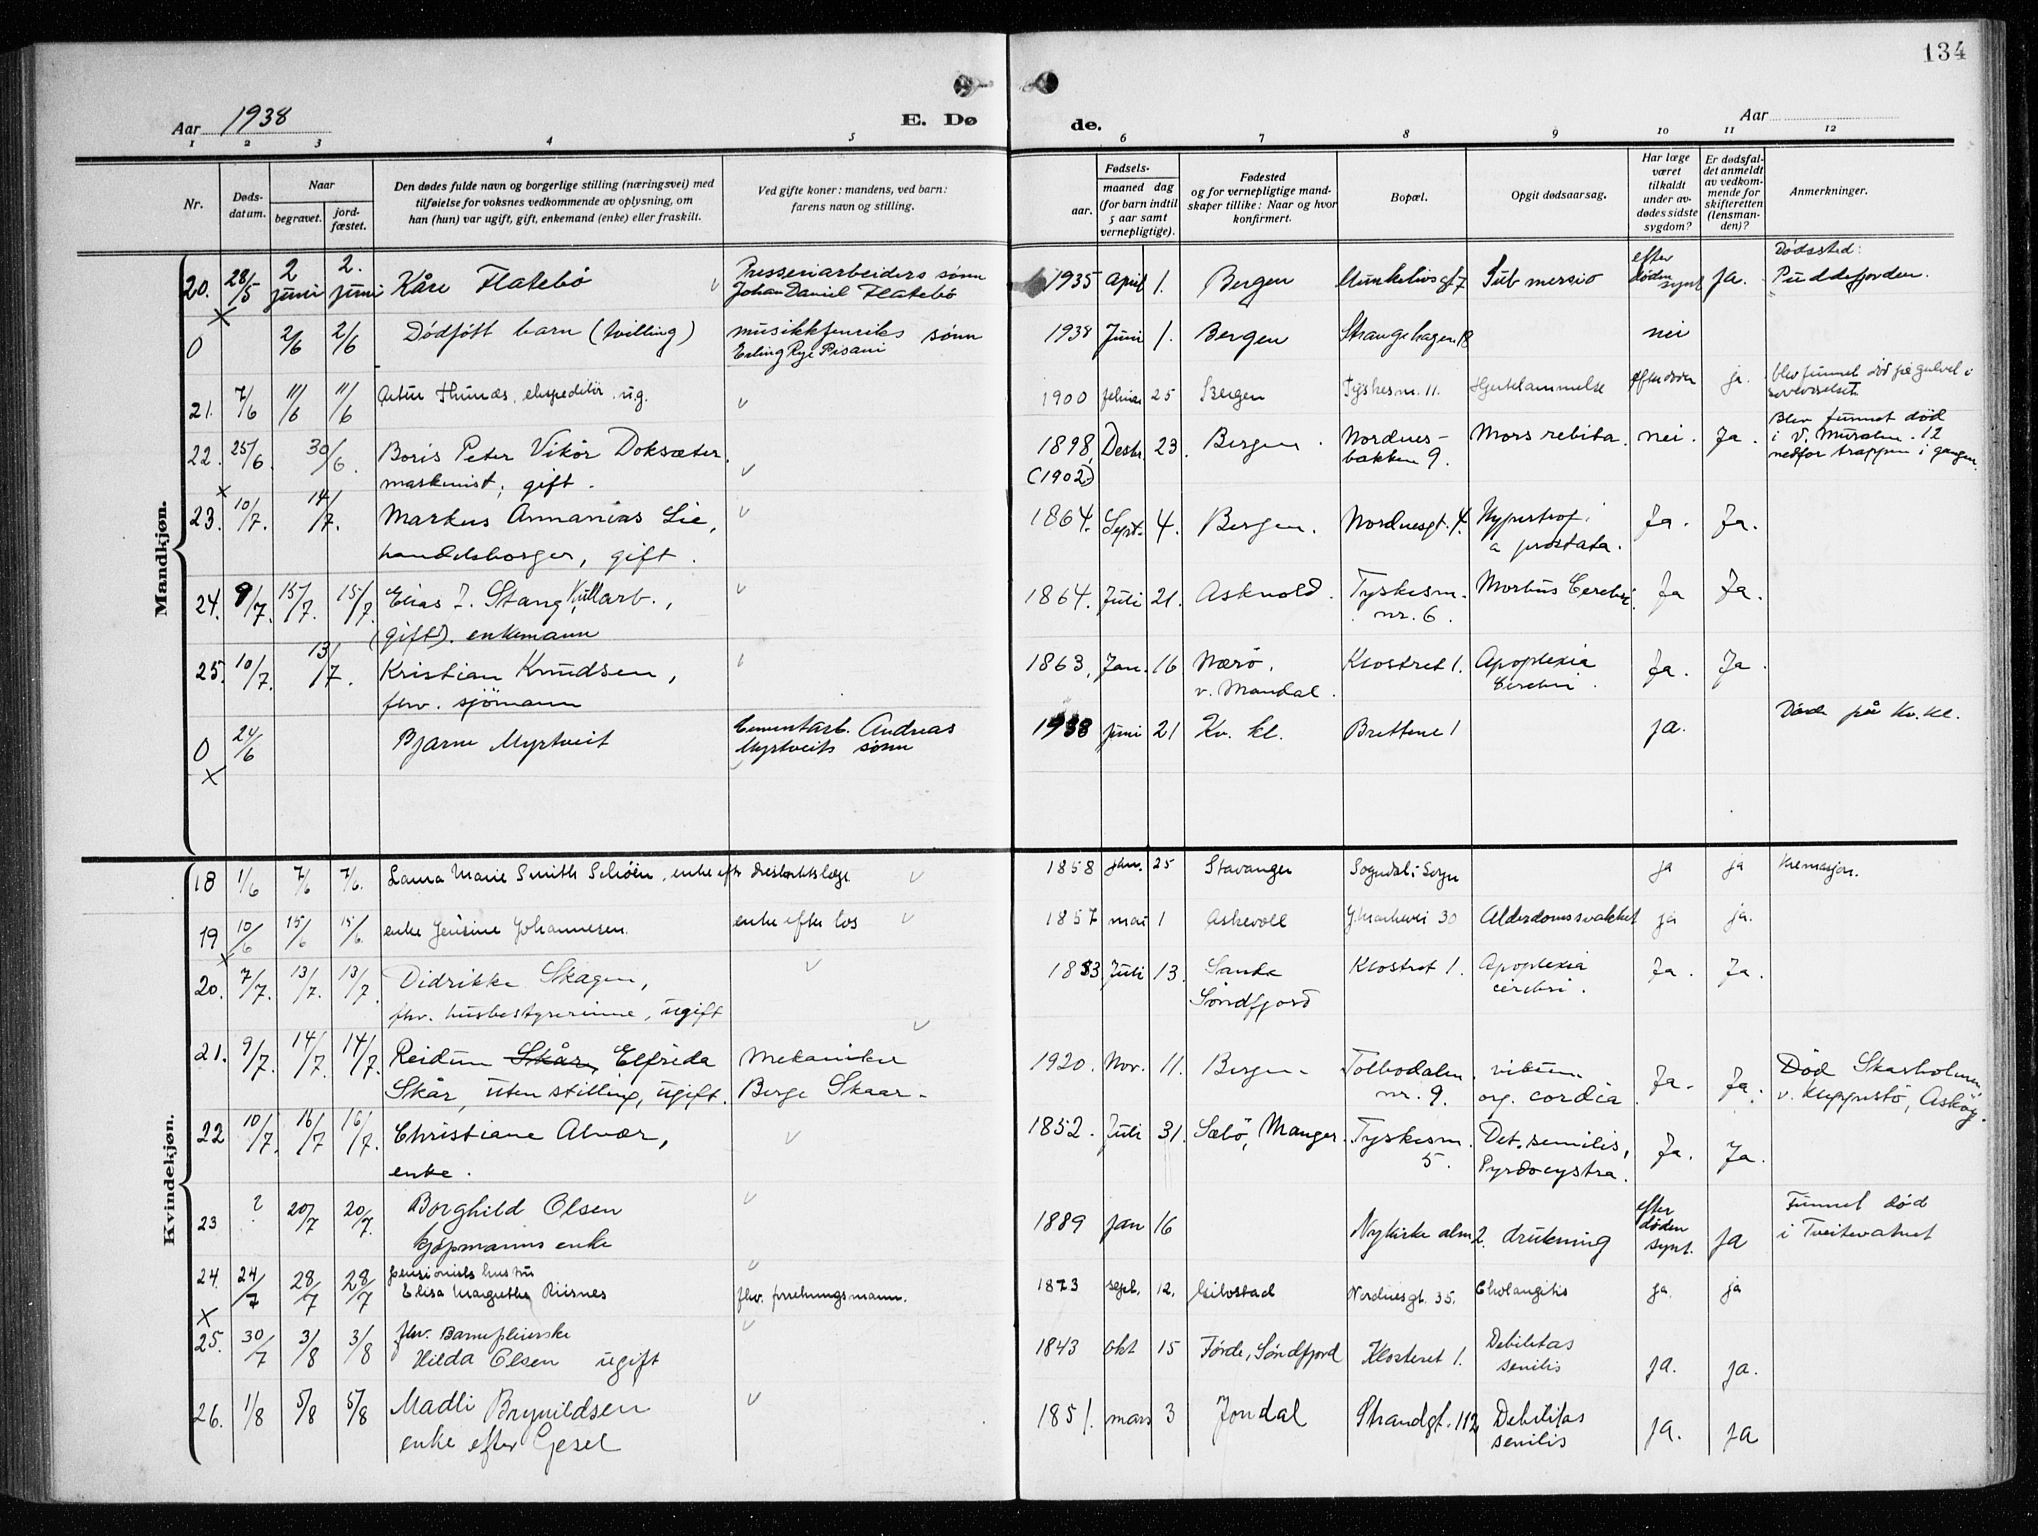 134
Aar 1938
E. Dø
de.
Aar
1 2 3 4 5 6 7 8 9 10 11 12
Nr.
Døds-
datum.
Naar
begravet.
jord-
fæstet.
Den dødes fulde navn og borgerlige stilling (næringsvei) med
tilføielse for voksnes vedkommende av oplysning, om
han (hun) var ugift, gift, enkemand (enke) eller fraskilt.
Ved gifte koner: mandens, ved barn:
farens navn og stilling.
Fødsels-
aar.
maaned dag
(for barn indtil
5 aar samt
vernepligtige).
Fødested
og for vernepligtige mand-
skaper tillike: Naar og hvor
konfirmert.
Bopæl.
Opgit dødsaarsag.
Har læge
været
tilkaldt
under av-
dødes sidste
sygdom?
Er dødsfal-
det anmeldt
av vedkom-
mende for
skifteretten
(lensman-
den)?
Anmerkninger.
Mandkjøn.
20. 28/5 2 juni 2. juni Kåre Flatebö
Presseriarbeiders sønn
Johan Daniel Flatebö
1935 April 1. Bergen Munkelivsgt 7 Submersio
efter
døden
synt
Ja.
Dødssted:
Puddefjorden.
0 2/6 2/6 Dødfött barn (tvilling)
musikkfenriks sønn
Erling Rye Pisani
1938 Juni 1. Bergen Strangehagen 18 nei
21. 7/6 11/6 11/6 Artur Thunæs, ekspeditör. ug.
1900 februar 25 Bergen Tyskesm. 11. Hjertelammelse efter døden ja.
blev funnet død på gulvet i
soveværelset.
22. 25/6. 30/6. Boris Peter Vikör Doksæter,
maskinist, gift.
1898 (1902) Desbr. 23. Bergen. Nordnes-
bakken 9.
Mors rebita. nei. Ja.
Blev funnet død
i V. Muralm. 12
nedfor trappen i gangen.
23. 10/7. 14/7. Markus Annanias Lie,
handelsborger, gift.
1864. Sept. 4. Bergen. Nordnesgt. 4. Hypertrof.
a prostata.
Ja. Ja.
24. 9/7. 15/7. 15/7 Elias J. Stang, Kullarb.,
(gift). enkemann
1864. Juli 21. Askvold. Tyskesm.
nr. 6.
Morbus Cerebri. Ja Ja.
25. 10/7. 13/7. Kristian Knudsen,
fhv. sjömann
1863, Jan. 16 Nærö,
v. Mandal.
Klostret 1. Apoplexia
Cerebri.
Ja. Ja.
0 24/6 Bjarne Myrtveit
Cementarb. Andreas
Myrtveits sønn
1938 juni 21 Kv. kl. Brettene 1 ja.
Døde på Kv.kl.
Kvindekjøn.
18 1/6 7/6 7/6. Laura Marie Smith Schöen, enke efter distriktslæge
1858 jan. 25 Stavanger Sogndal i Sogn ja ja Kremasjon.
19 10/6 15/6 15/6. enke Jensine Johannesen.
enke efter los
1857 mai 1 Askevoll Y. Markevei 30 Alderdomssvakhet ja ja.
20. 7/7. 13/7. 13/7. Didrikke Skagen,
fhv. husbestyrerinne, ugift
1853 Juli 13. Sande
Søndfjord
Klostret 1. Apoplexia
cerebri.
Ja. Ja.
21. 9/7. 14/7. 14/7. Reidun Skår, Elfrida
Skår, uten stilling, ugift.
Mekaniker
Berge Skaar.
1920. Nov. 11. Bergen Tolbodalm.
nr. 9.
vitium
org. cordia.
Ja. Ja.
Död Skarholmen,
v. Kleppestö, Asköy.
22 10/7. 16/7 16/7. Christiane Alvær,
enke.
1852. Juli 31. Sæbö, Manger. Tyskesm.
5.
Det. senilis,
Pyrdocystra.
Ja. Ja.
23 ? 20/7 20/7. Borghild Olsen
kjøpmanns enke
1889 jan 16 Nykirke alm 2. drukning
efter
døden
synt.
Ja
Funnet död
i Tveitevatnet
24. 24/7 28/7 28/7 pensionists hustru
Elisa Margrethe Riisnes
fhv. forretningsmann.
1873 sept. 12. Gibostad Nordnesgt. 35. Cholangitis ja. ja
25. 30/7 3/8 3/8 fhv. Barnepleierske
Hilda Olsen ugift
1843 okt 15 Førde, Søndfjord Klosteret 1. Debilitas
senilis
ja. ja.
26. 1/8 5/8 5/8 Madli Brynildsen
enke efter Gesel
1851. mars 3 Jondal Strandgt. 112 Debilitas
senilis
ja. ja